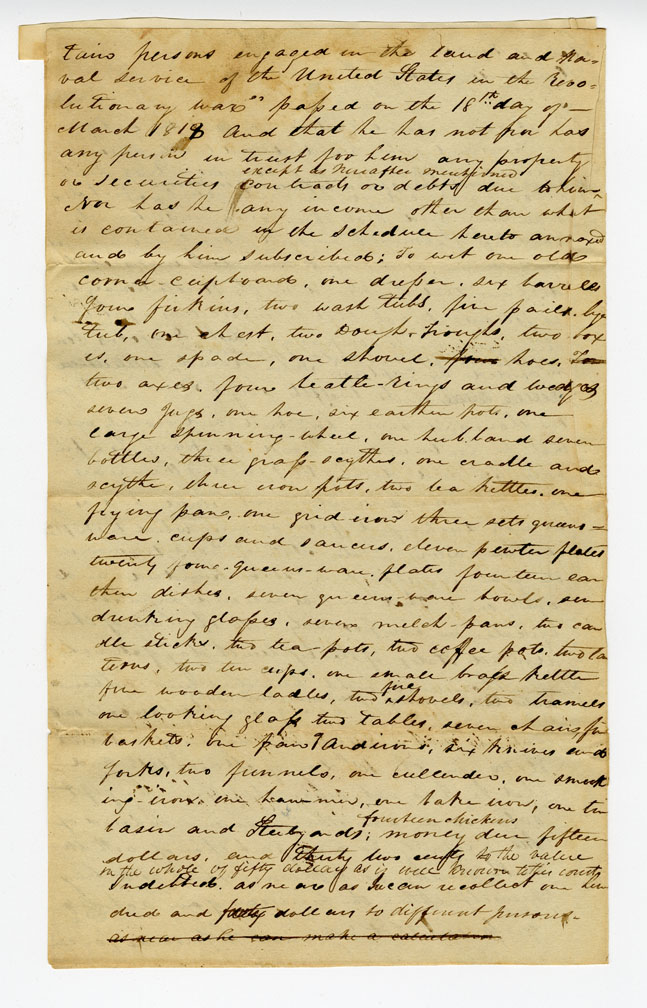 tain persons engaged in the land and Na-
val service of the United States in the Revo-
lutionary war" passed on the 18th day of
March 1818 And that he has not nor has
any person in trust for him any property
except as hereafter mentioned
or securities contracts or debts due to him
Nor has he any income other than what
is contained in the schedule hereto annexed
and by him subscribed; To wit one old
corner-cupboard, one dresser, six barrells
four firkins, two wash tubs, five pails,
tub, one chest, two Dough-Troughs, two box
es, one spade, one shovel, four hoes,
two axes, four beatle-rings and wedges
seven Jugs, one hoe, six earthen pots, one
large spinning-wheel, one hub, and seven
bottles, three grass-scythes, one cradle and
scythe, three iron pots, two tea kettles, one
frying pan, one grid iron three sets queens-
ware cups and saucers, eleven pewter plates
twenty four queens-ware plates fourteen ear
then dishes, seven queens-ware bowls, seven
drinking glasses, seven melch-pans, two can
dle sticks, two tea-pots, two coffee pots, two lan
terns, two tin cups, one small brass kettle
five wooden ladles, two fire shovels, two tramels
one looking glass two tables, seven chairs
baskets, one pair Andirons, six knives and
forks, two funnels, one cullender, one smooth
ing-iron, one hammer, one bake iron, one tin
fourteen chickens
basin and Steelyards; money due fifteen
dollars, and thirty two cents to the value
in the whole of fifty dollars as is well known to this county
indebted as near as we can recollect one hun
dred and forty dollars to different persons-
as near as he can make a calculation